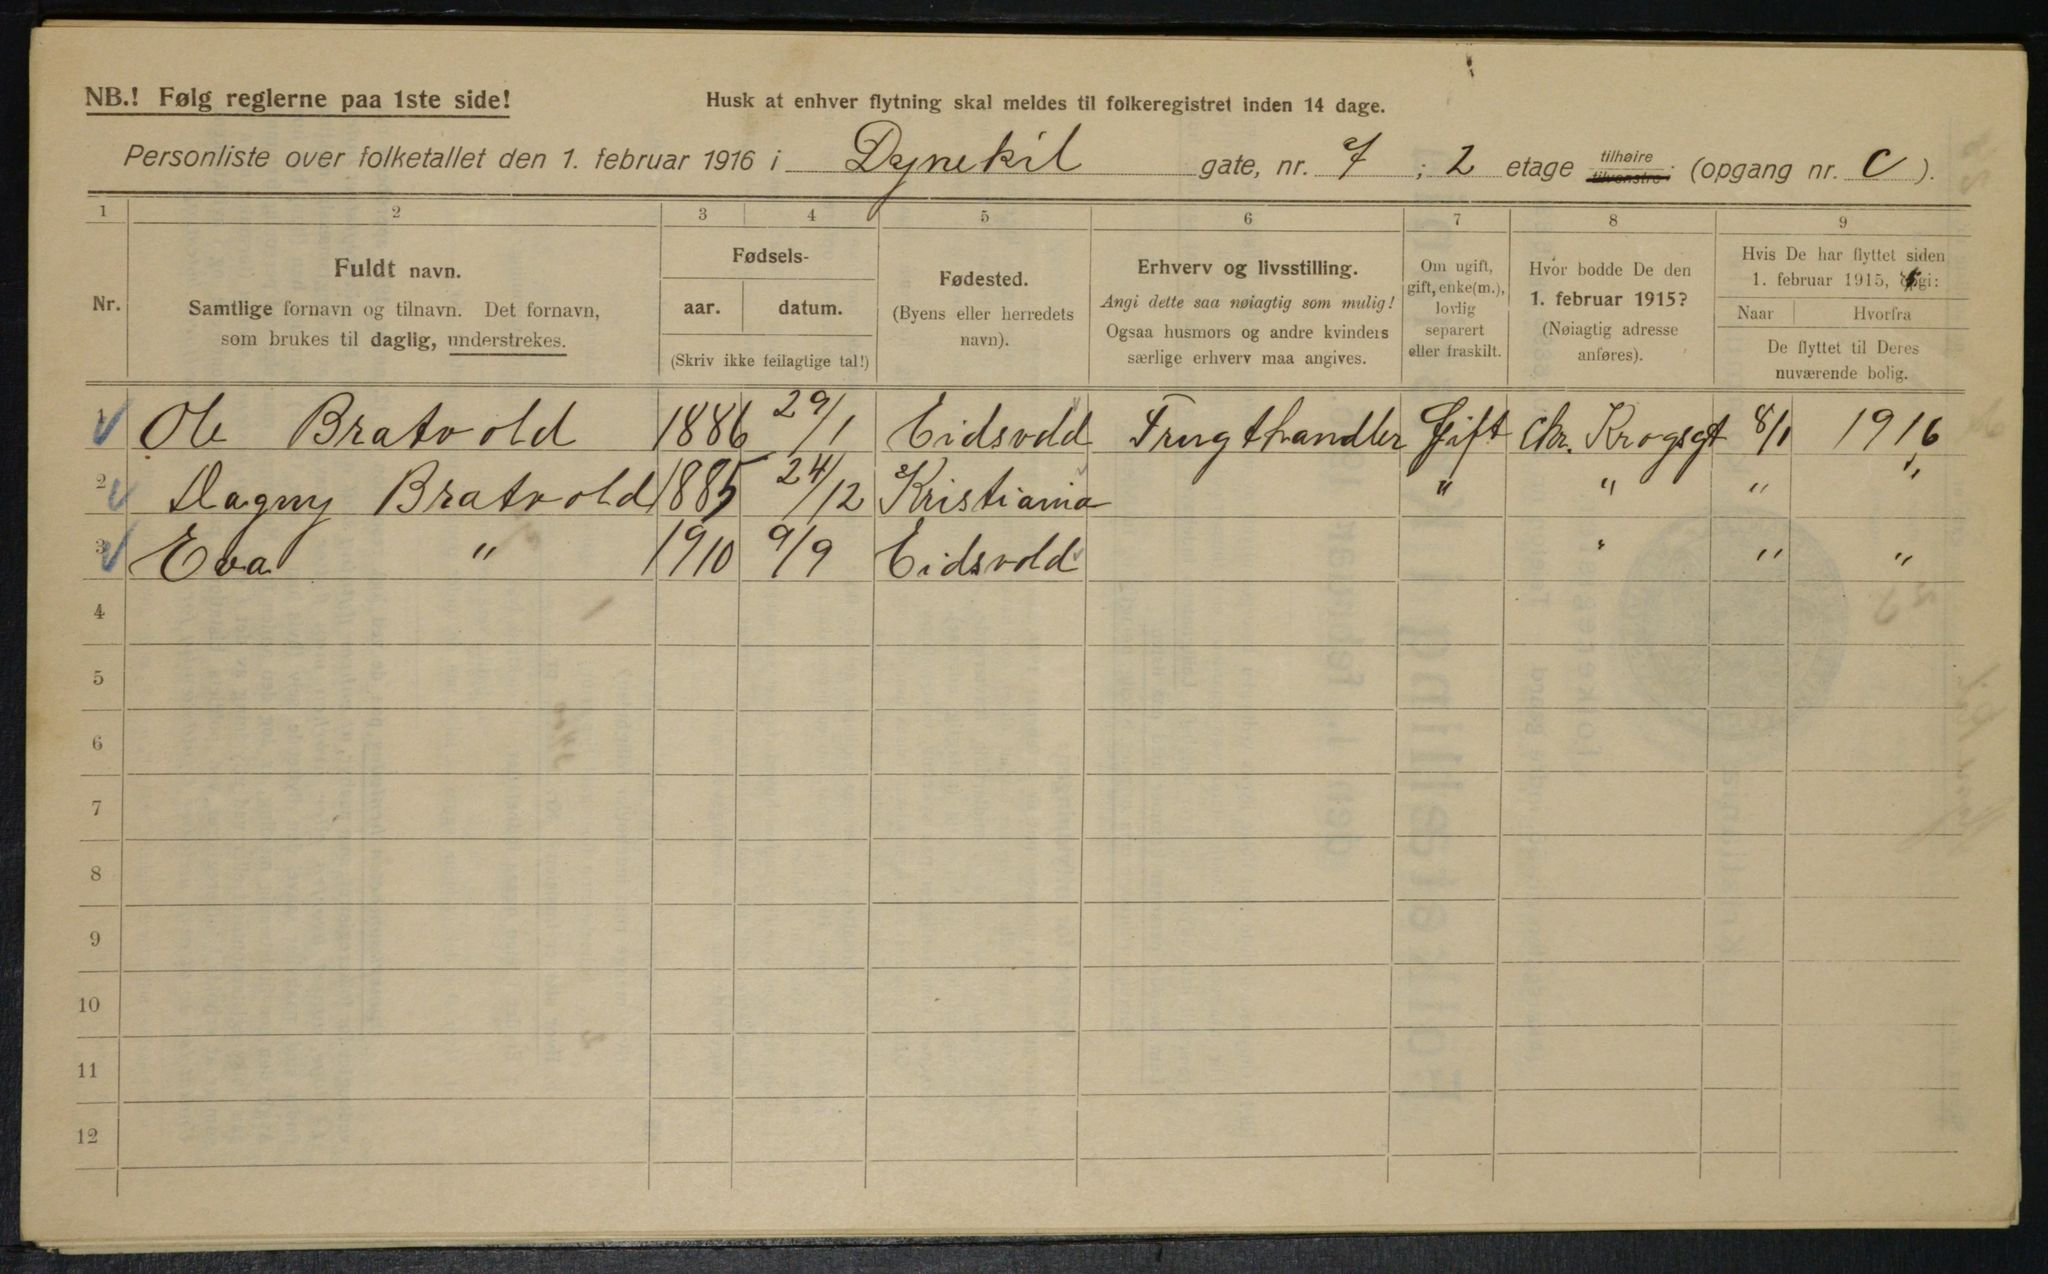 NB.! Følg reglerne paa 1ste side!
Husk at enhver flytning skal meldes til folkeregistret inden 14 dage.
Personliste over folketallet den 1. februar 1916 i Dynekil gate, nr. 7 ; 2 etage tilhøire tilvenstre (opgang nr. C ).
1 2 3 4 5 6 7 8 9
Nr.
Fuldt navn.
Samtlige fornavn og tilnavn. Det fornavn,
som brukes til daglig, understrekes.
Fødsels-
aar. datum.
(Skriv ikke feilagtige tal!)
Fødested.
(Byens eller herredets
navn).
Erhverv og livsstilling.
Angi dette saa nøiagtig som mulig!
Ogsaa husmors og andre kvinders
særlige erhverv maa angives.
Om ugift,
gift, enke(m.),
lovlig
separert
eller fraskilt.
Hvor bodde De den
1. februar 1915?
(Nøiagtig adresse
anføres).
Hvis De har flyttet siden
1. februar 1915, opgi:
Naar Hvorfra
De flyttet til Deres
nuværende bolig.
1 Ole Bratvold 1886 29/1 Eidsvold Frugthandler Gift Chr. Krogsgt 8/1 1916
2 Dagny Bratvold 1885 24/12 Kristiania " " " "
3 Eva " 1910 9/9 Eidsvold " " "
4
5
6
7
8
9
10
11
12